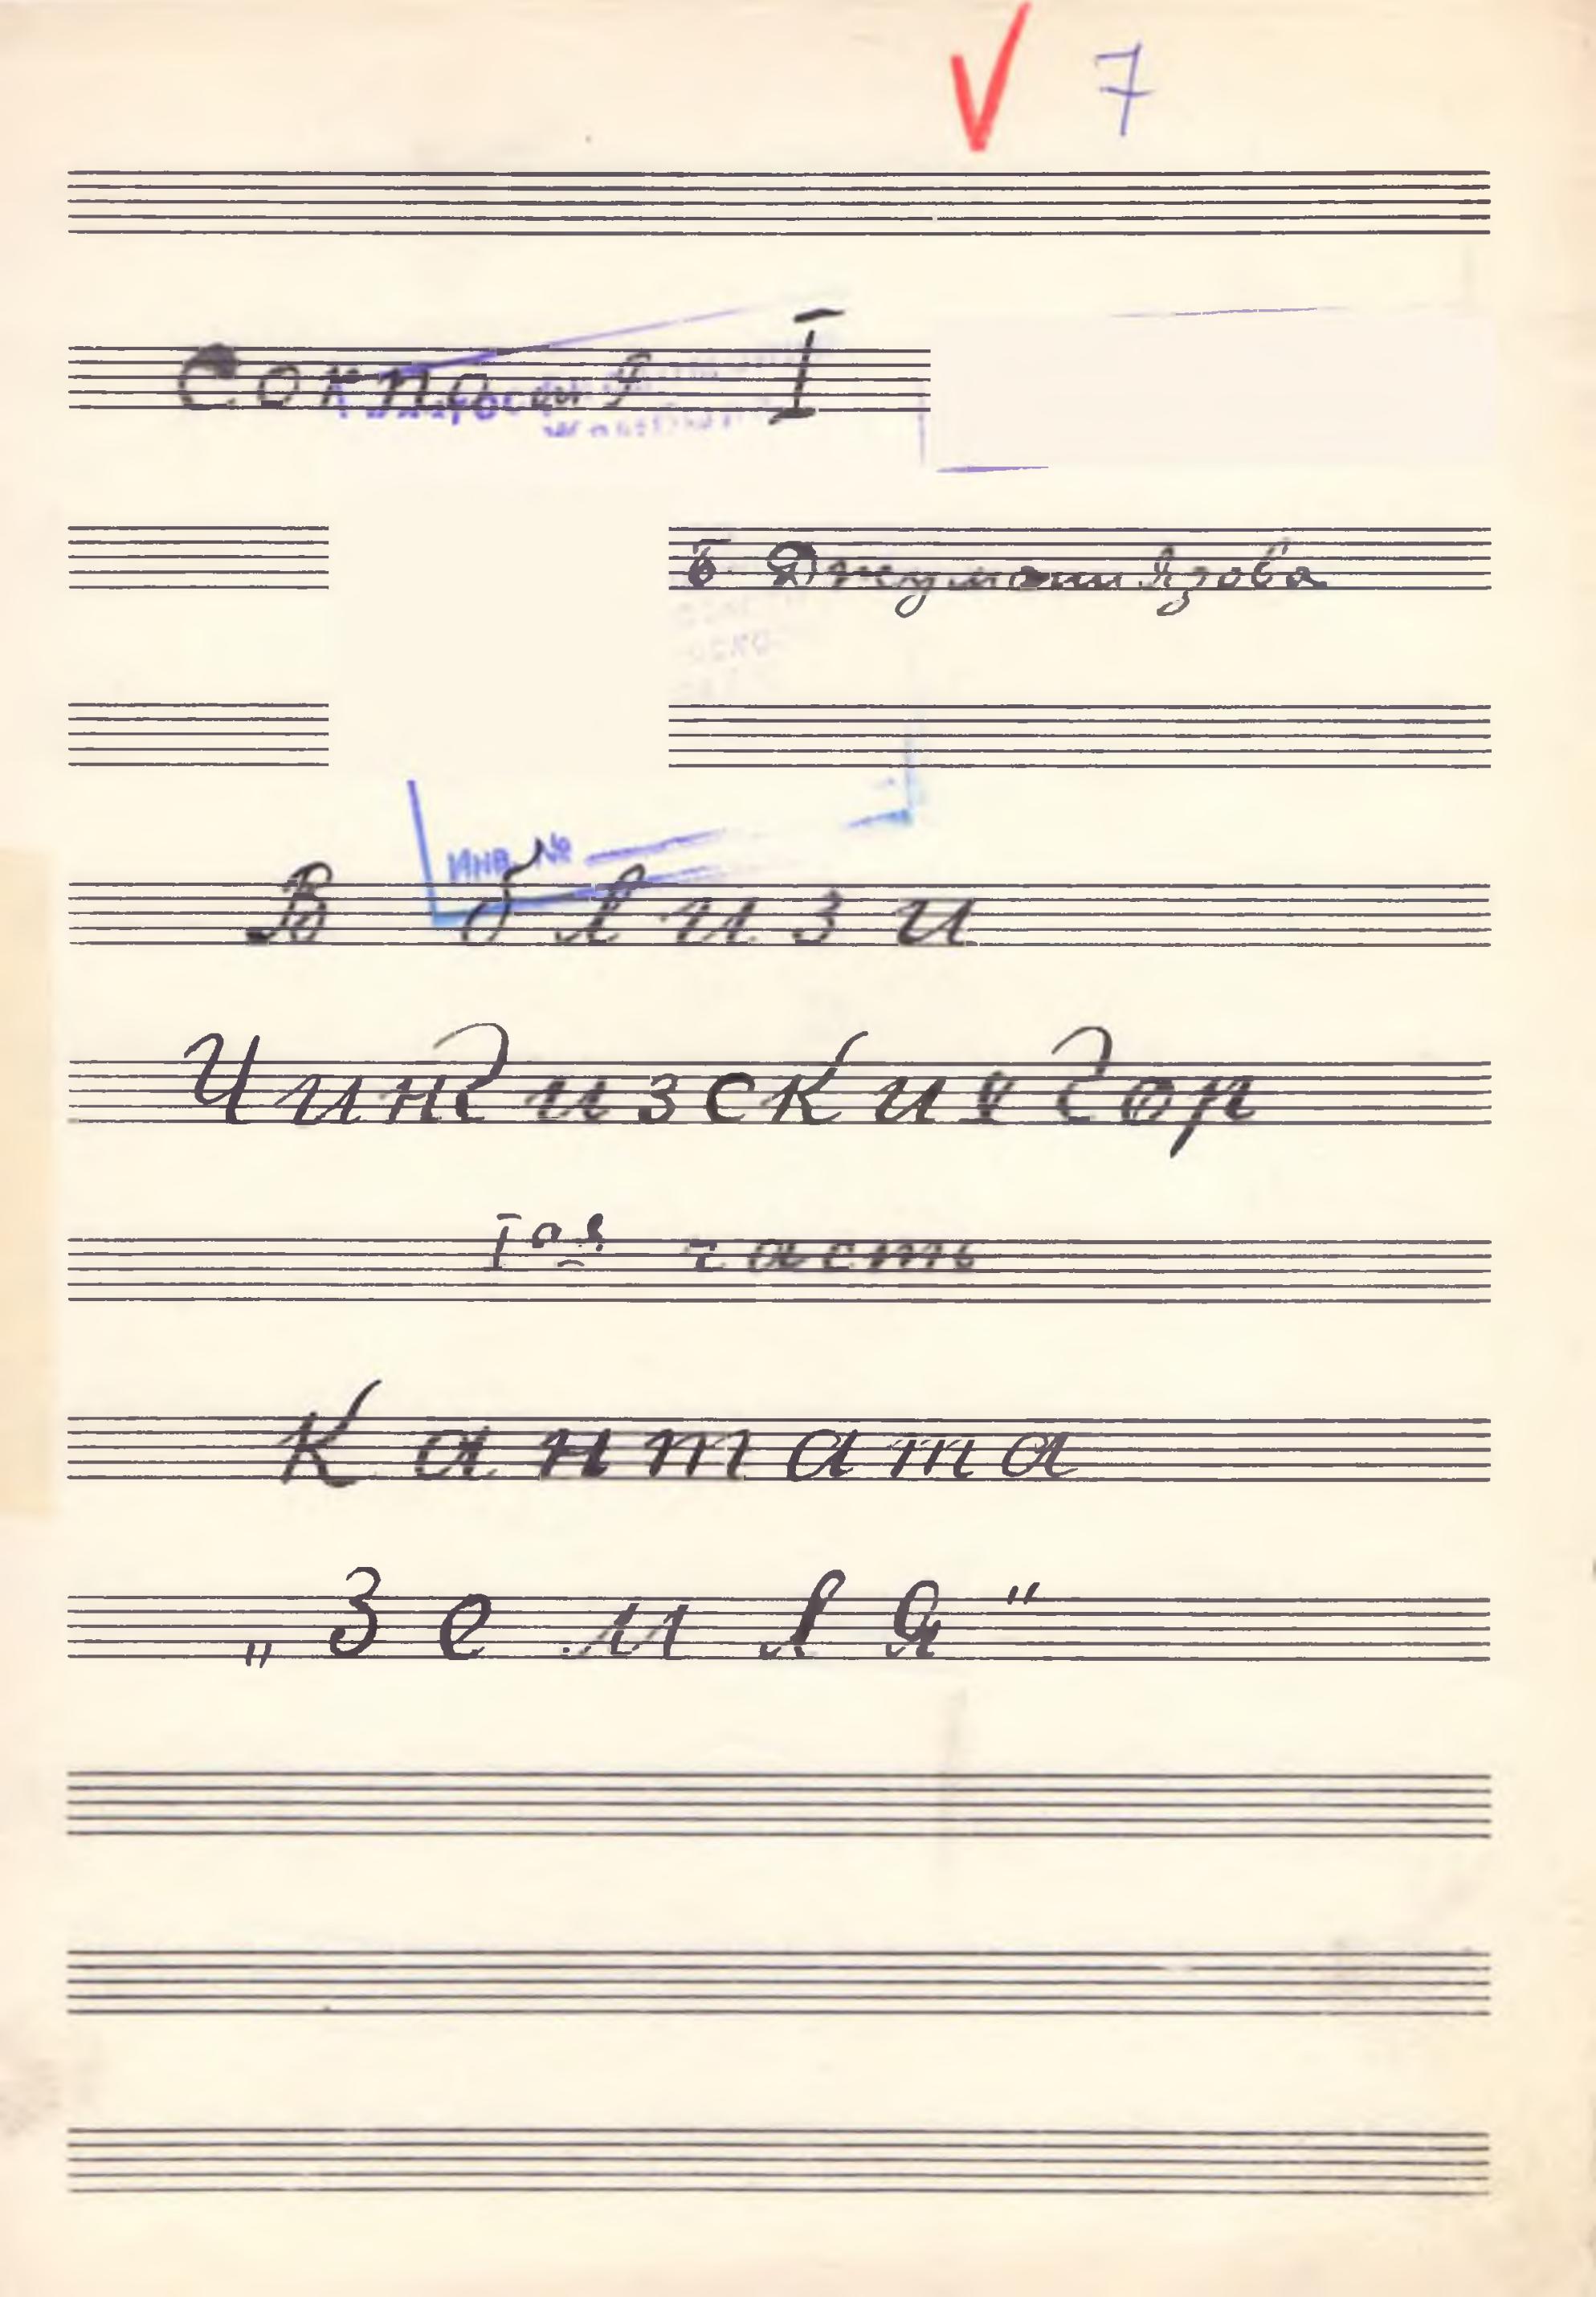 7
I
Б. Джуманиязова
Инв. №
Вблизи
Чингизские гор
Iая часть
Кантата
„Земля"